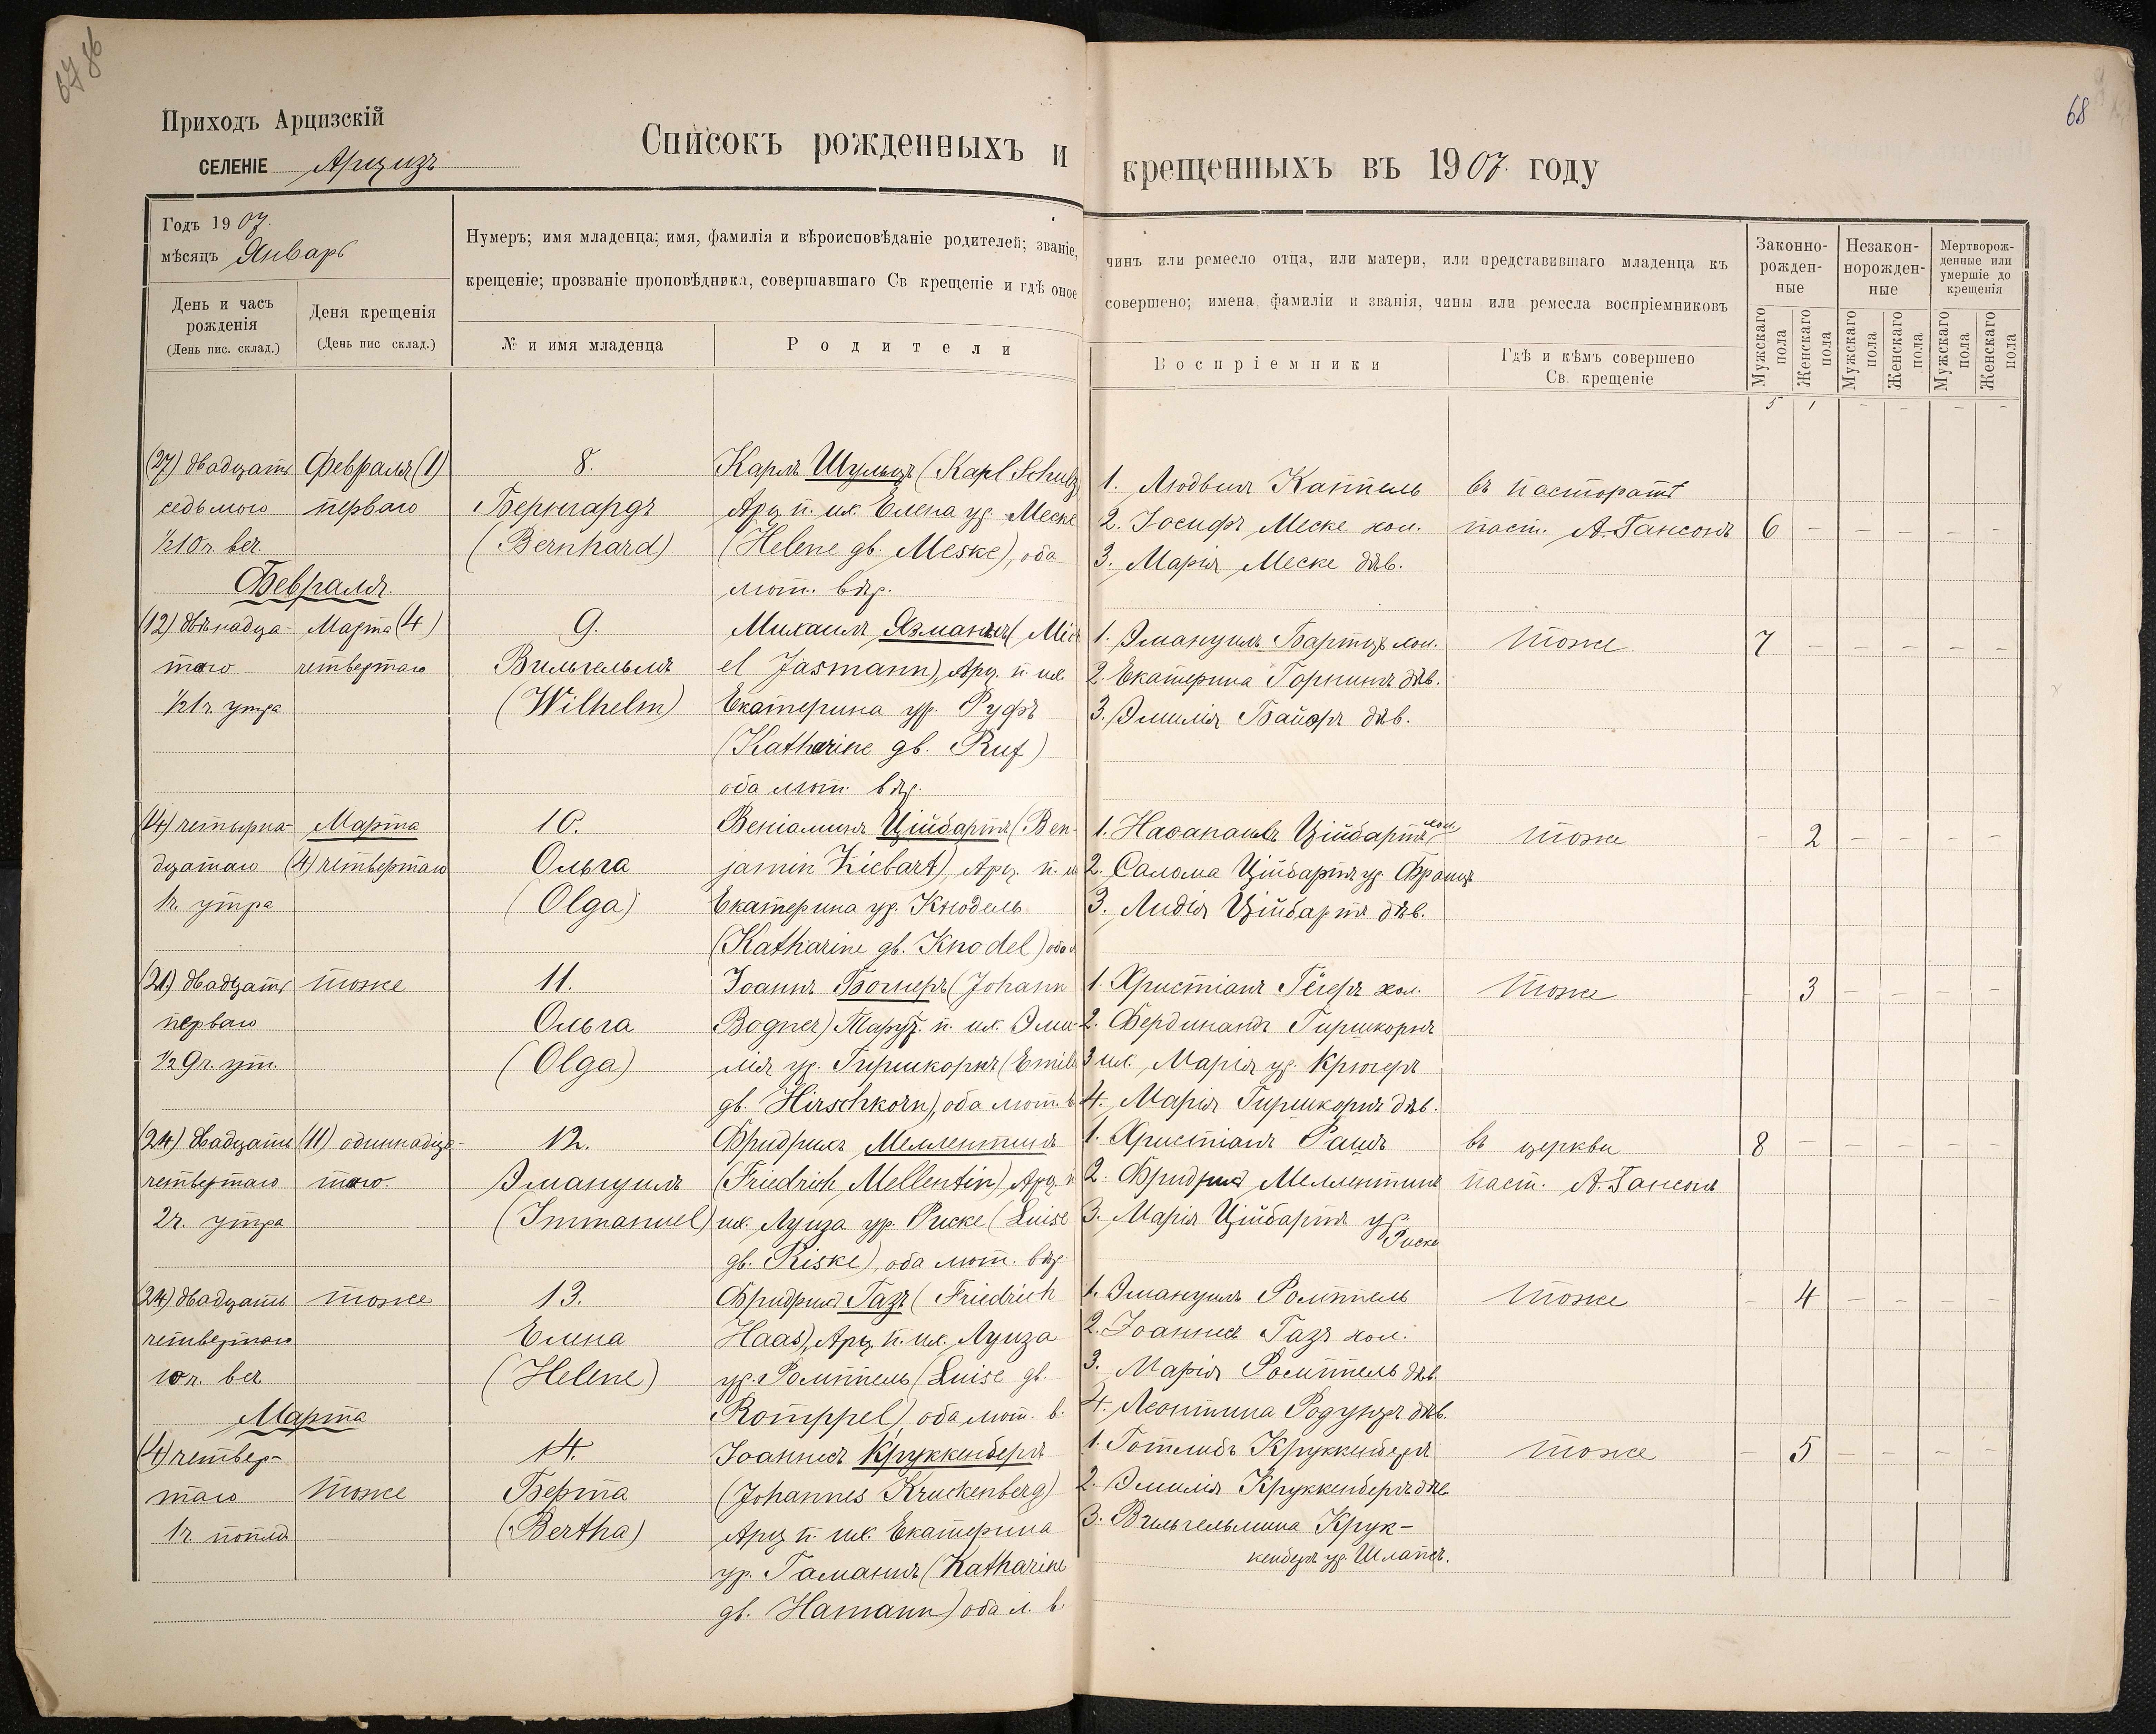 67 86
68
Приходъ Арцизскій
СЕЛЕНІЕ Арцизъ
Списокъ рожденныхъ и крещенныхъ въ 1907. году
Годъ 1907.
мѣсяцъ Январь
День и часъ
рожденія
(День пис. склад.)
Деня крещенія
(День пис склад.)
Нумеръ; имя младенца; имя, фамилія и вѣроисповѣданіе родителей; званіе,
крещеніе; прозваніе проповѣдника, совершавшаго Св крещеніе и гдѣ оное
№ и имя младенца
Родители
чинъ или ремесло отца, или матери, или представившаго младенца къ
совершено; имена фамиліи и званія, чины или ремесла воспріемниковъ
Воспріемники
Гдѣ и кѣмъ совершено
Св. крещеніе
Законно-
рожден-
ные
Незакон-
норожден-
ные
Мертворож-
денные или
умершіе до
крещенія
Мужскаго пола
Женскаго пола
Мужскаго пола
Женскаго пола
Мужскаго пола
Женскаго пола
5 1 - - - -
(27) двадцать
седьмого
½10 ч. веч.
Февраля (1)
перваго
8.
Бернгардъ
(Bernhard)
Карлъ Шульцъ (Karl Schulz
Арц. п. ж. Елена ур. Меске
(Helene gb. Meske), оба
лют. вѣр.
1. Людвигъ Каппель
2. Іосифъ Меске хол.
3. Марія Меске дѣв.
въ пасторатѣ
паст. А. Гансонъ
6 - - - - -
Февраля.
(12) двѣнадца-
таго
½1 ч. утра
Марта (4)
четвертаго
9.
Вильгельмъ
(Wilhelm)
Михаилъ Язманнъ (Mich
el Jasmann), Арц. п. ж.
Екатерина ур. Руфъ
(Katharine gb. Ruf)
оба лют. вѣр.
1. Эмануилъ Бартцъ хол.
2. Екатерина Горнингъ дѣв.
3. Эмилія Байеръ дѣв.
тоже
7 - - - - -
(14) четырна-
дцатаго
1 ч. утра
Марта
(4) четвертаго
10.
Ольга
(Olga)
Веніаминъ Ційбартъ (Ben-
jamin Ziebart), Арц. п. ж
Екатерина ур. Кнодель
(Katharine gb. Knodel) оба л
1. Наѳанаилъ Ційбартъ хол
2. Салома Ційбартъ ур. Францъ
3. Лидія Ційбартъ дѣв.
тоже
- 2 - - - -
(21) двадцать
перваго
½9 ч. ут.
тоже
11.
Ольга
(Olga)
Іоаннъ Богнеръ (Johann
Bogner) Тарут. п. ж. Эми-
лія ур. Гиршкорнъ (Emilie
gb. Hirschkorn), оба лют. в.
1. Христіанъ Гёгеръ хол.
2. Фердинандъ Гиршкорнъ
3 ж. Марія ур. Крюгеръ
4. Марія Гиршкорнъ дѣв.
тоже
- 3 - - - -
(24) двадцать
четвертаго
2 ч. утра
(11) одиннадца-
таго
12.
Эмануилъ
(Immanuel)
Фридрихъ Меллентинъ
(Friedrich Mellentin) Арц. п
ж. Луиза ур. Риске (Luise
gb. Riske), оба лют. вѣр.
1. Христіанъ Рашъ
2. Фридрихъ Меллентинъ
3. Марія Ційбартъ ур.
Риске
въ церкви
паст. А. Гансонъ
8 - - - - -
(24) двадцать
четвертаго
10 ч. веч.
тоже
13.
Елена
(Helene)
Фридрихъ Газъ (Friedrich
Haas), Арц. п. ж. Луиза
ур. Ромппель (Luise gb.
Romppel), оба лют. в.
1. Эмануилъ Ромппель
2. Іоаннесъ Газъ хол.
3. Марія Ромппель дѣв.
4. Леонтина Родунцъ дѣв.
тоже
- 4 - - - -
Марта
(4) четвер-
таго
1 ч. попол
тоже
14.
Берта
(Bertha)
Іоаннесъ Круккенбергъ
(Johannes Kruckenberg)
Арц. п. ж. Екатерина
ур. Гаманнъ (Katharine
gb. Hamann) оба л. в.
1. Готлибъ Круккенбергъ
2. Эмилія Круккенбергъ дѣв.
3. Вильгельмина Крук-
кенбергъ ур. Шлапсъ.
тоже
- 5 - - - -